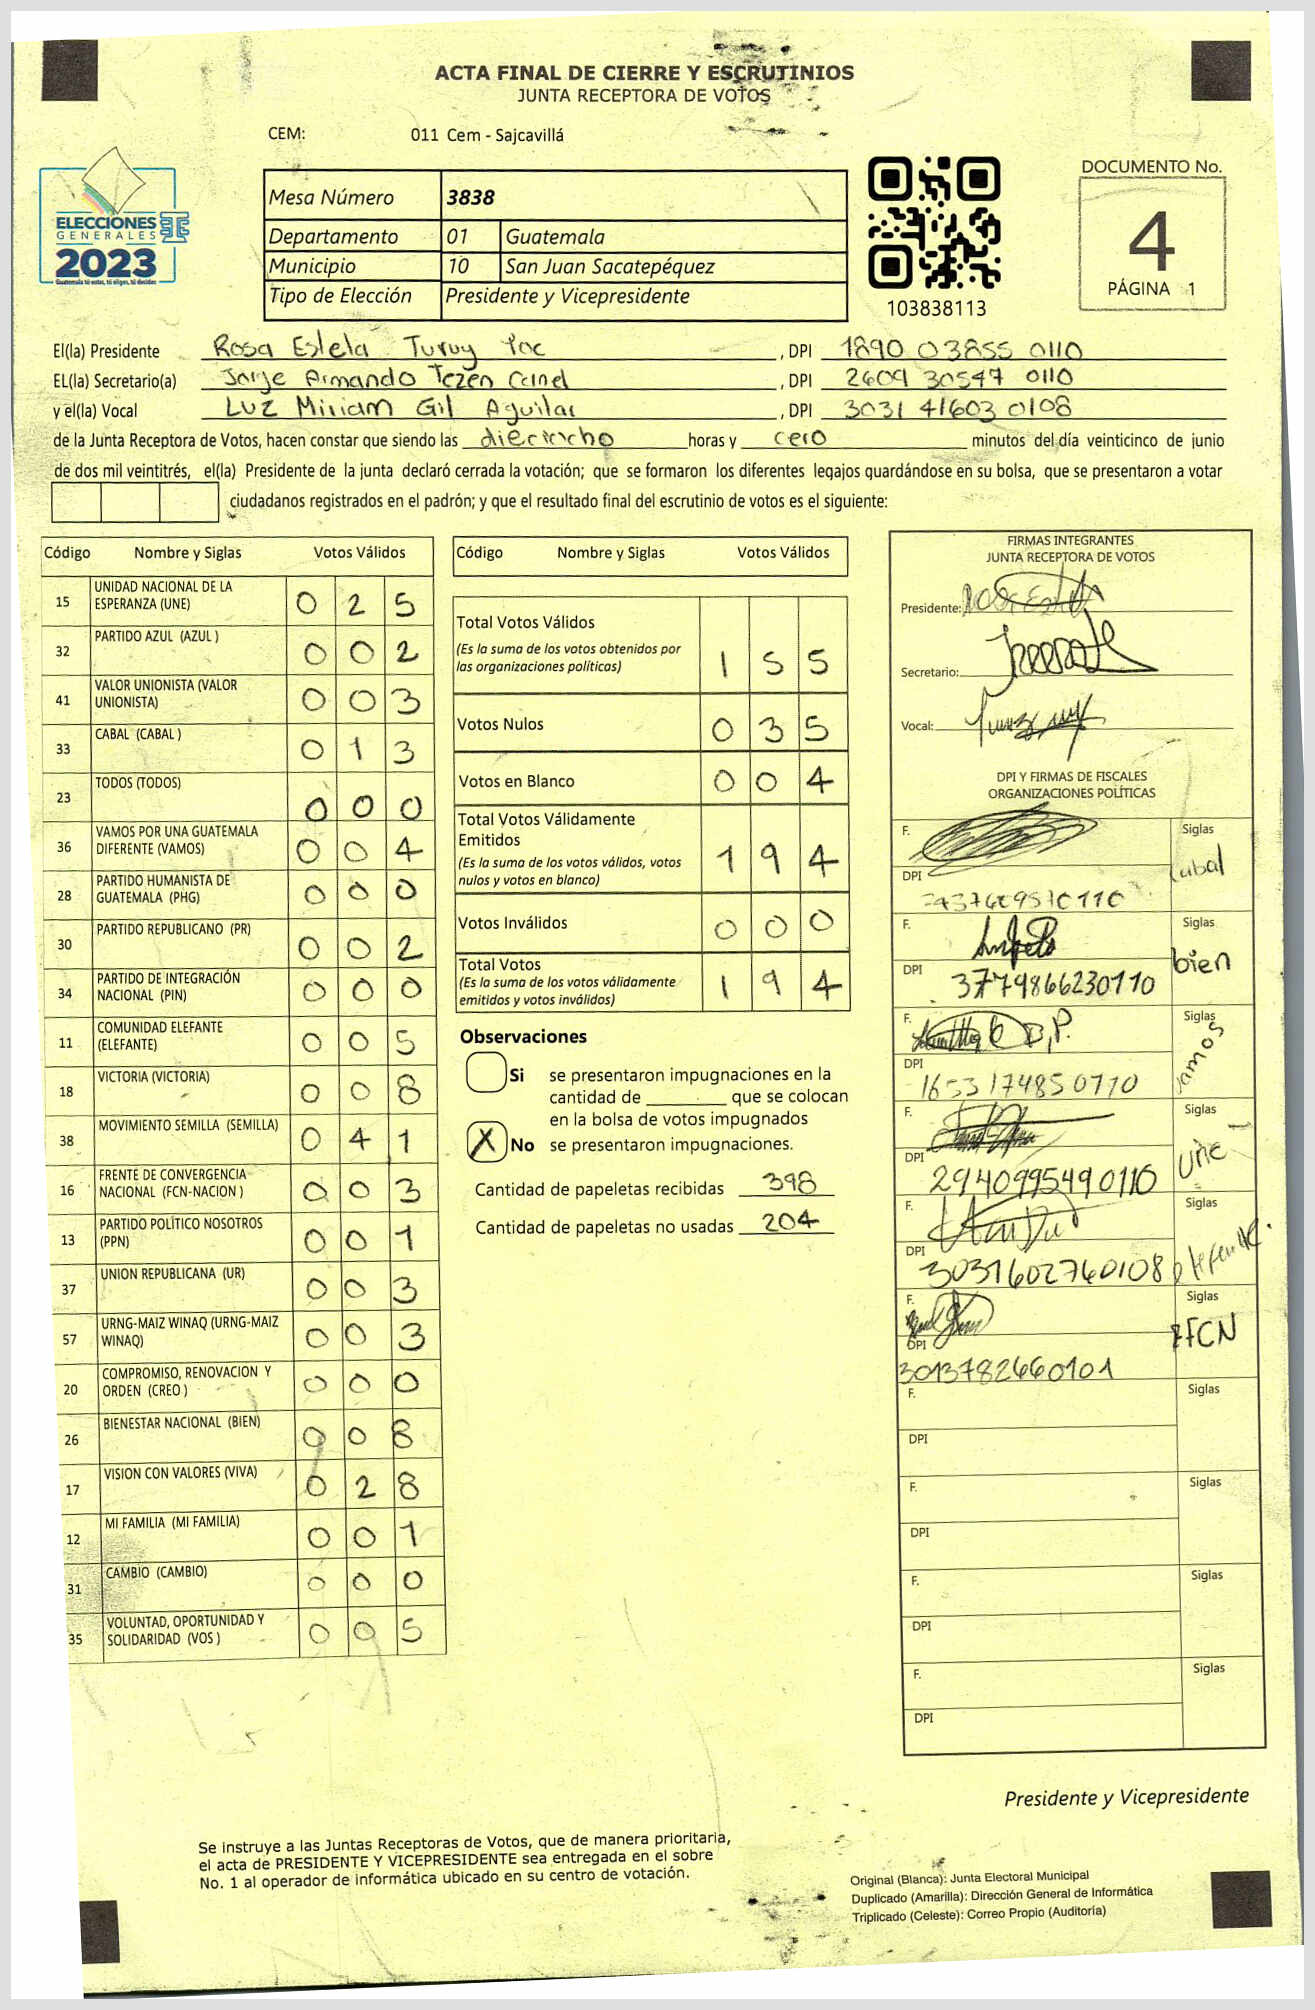 ACTA FINAL DE CIERRE Y ESCRUTINIOS
JUNTA RECEPTORA DE VOTOS
CEM: 011 Cem - Sajcavillá
ELECCIONES
GENERALES
2023
Guatemala tú votas, tú eliges, tú decides
Mesa Número 3838
Departamento 01 Guatemala
Municipio 10 San Juan Sacatepéquez
Tipo de Elección Presidente y Vicepresidente
103838113
DOCUMENTO No.
4
PÁGINA 1
El(la) Presidente Rosa Estela Turuy, DPI 1890 03855 0110
EL(la) Secretario(a) Jorge Armando Tezen Canel, DPI 2609 30547 0110
y el(la) Vocal Luz Miriam Gil Aguilar, DPI 3031 41603 0108
de la Junta Receptora de Votos, hacen constar que siendo las dieciocho horas y cero minutos del día veinticinco de junio
de dos mil veintitrés, el(la) Presidente de la junta declaró cerrada la votación; que se formaron los diferentes legajos guardándose en su bolsa, que se presentaron a votar
ciudadanos registrados en el padrón; y que el resultado final del escrutinio de votos es el siguiente:
Código Nombre y Siglas Votos Válidos
15 UNIDAD NACIONAL DE LA ESPERANZA (UNE) 0 2 5
32 PARTIDO AZUL (AZUL ) 0 0 2
41 VALOR UNIONISTA (VALOR UNIONISTA) 0 0 3
33 CABAL (CABAL ) 0 1 3
23 TODOS (TODOS) 0 0 0
36 VAMOS POR UNA GUATEMALA DIFERENTE (VAMOS) 0 0 4
28 PARTIDO HUMANISTA DE GUATEMALA (PHG) 0 0 0
30 PARTIDO REPUBLICANO (PR) 0 0 2
34 PARTIDO DE INTEGRACIÓN NACIONAL (PIN) 0 0 0
11 COMUNIDAD ELEFANTE (ELEFANTE) 0 0 5
18 VICTORIA (VICTORIA) 0 0 8
38 MOVIMIENTO SEMILLA (SEMILLA) 0 4 1
16 FRENTE DE CONVERGENCIA NACIONAL (FCN-NACION ) 0 0 3
13 PARTIDO POLÍTICO NOSOTROS (PPN) 0 0 1
37 UNION REPUBLICANA (UR) 0 0 3
57 URNG-MAIZ WINAQ (URNG-MAIZ WINAQ) 0 0 3
20 COMPROMISO, RENOVACION Y ORDEN (CREO ) 0 0 0
26 BIENESTAR NACIONAL (BIEN) 0 0 8
17 VISION CON VALORES (VIVA) 0 2 8
12 MI FAMILIA (MI FAMILIA) 0 0 1
31 CAMBIO (CAMBIO) 0 0 0
35 VOLUNTAD, OPORTUNIDAD Y SOLIDARIDAD (VOS ) 0 0 5
Código Nombre y Siglas Votos Válidos
Total Votos Válidos 1 5 5
(Es la suma de los votos obtenidos por
las organizaciones políticas)
Votos Nulos 0 3 5
Votos en Blanco 0 0 4
Total Votos Válidamente
Emitidos 1 9 4
(Es la suma de los votos válidos, votos
nulos y votos en blanco)
Votos Inválidos 0 0 0
Total Votos 1 9 4
(Es la suma de los votos válidamente
emitidos y votos inválidos)
Observaciones
Si se presentaron impugnaciones en la
cantidad de ________ que se colocan
en la bolsa de votos impugnados
X No se presentaron impugnaciones.
Cantidad de papeletas recibidas 398
Cantidad de papeletas no usadas 204
FIRMAS INTEGRANTES
JUNTA RECEPTORA DE VOTOS
Presidente:
Secretario:
Vocal:
DPI Y FIRMAS DE FISCALES
ORGANIZACIONES POLÍTICAS
F. Siglas
DPI Cabal
F. Siglas
DPI 3779866230110 bien
F. Siglas
DPI 1653174850110 vamos
F. Siglas
DPI 2940995490110 une
F. Siglas
DPI 3031602760108 elefante
F. Siglas
DPI 3013782660101 FCN
F. Siglas
DPI
F. Siglas
DPI
F. Siglas
DPI
F. Siglas
DPI
Presidente y Vicepresidente
Se instruye a las Juntas Receptoras de Votos, que de manera prioritaria,
el acta de PRESIDENTE Y VICEPRESIDENTE sea entregada en el sobre
No. 1 al operador de informática ubicado en su centro de votación.
Original (Blanca): Junta Electoral Municipal
Duplicado (Amarilla): Dirección General de Informática
Triplicado (Celeste): Correo Propio (Auditoría)